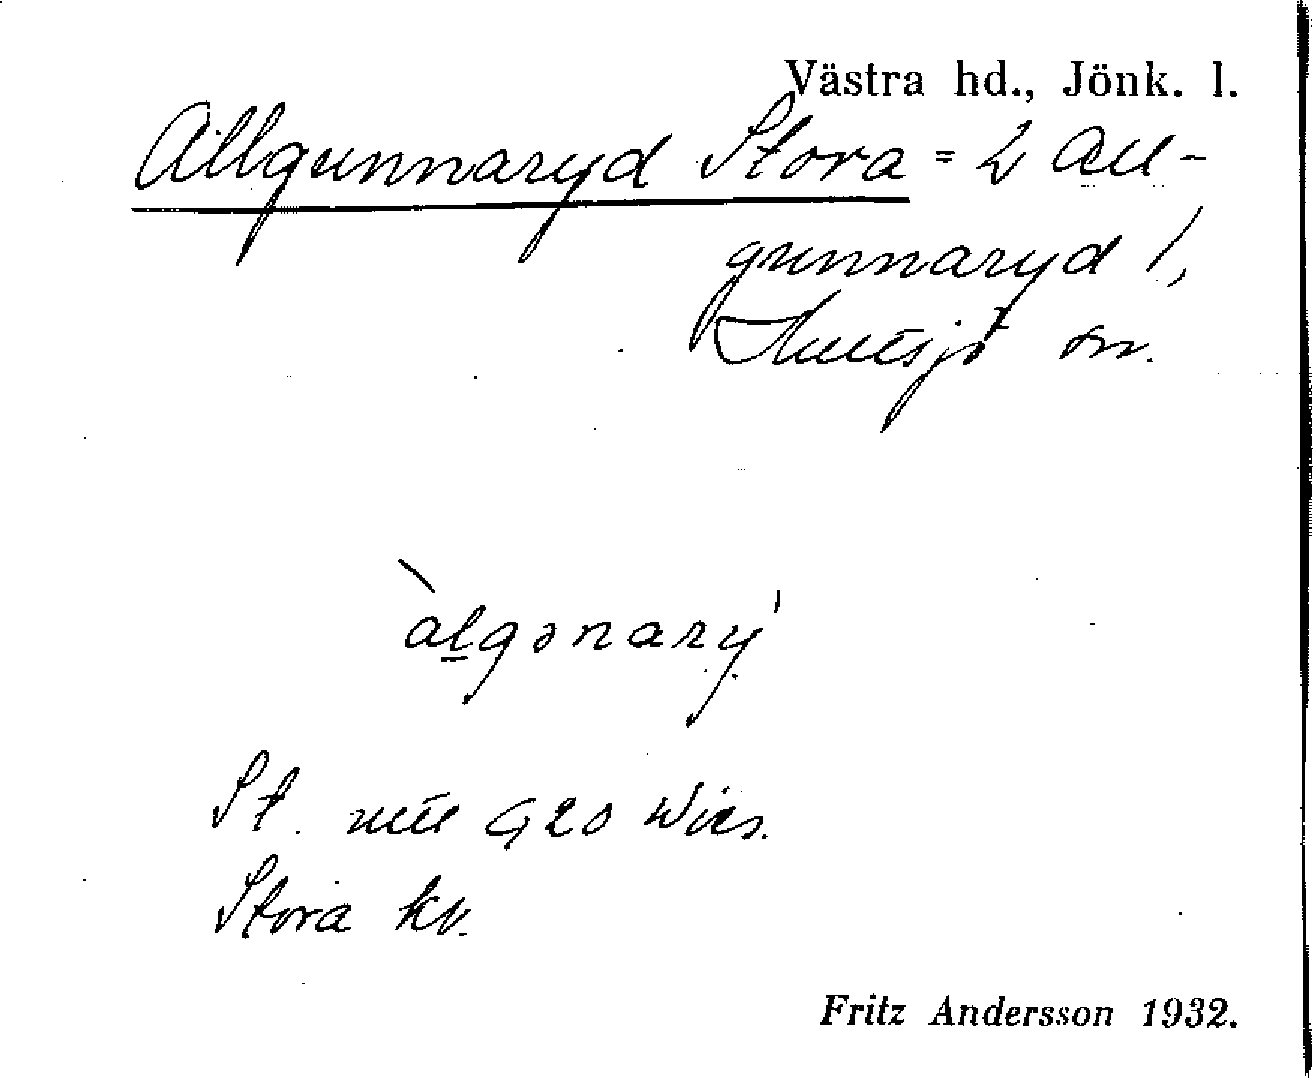 Västra hd., Jönk. l.
Allgunnaryd Stora = 2 All-
gunnaryd 1,
Hultsjö sn.
àlgənarẏ
St.
Stora kv.
Fritz Andersson 1932.